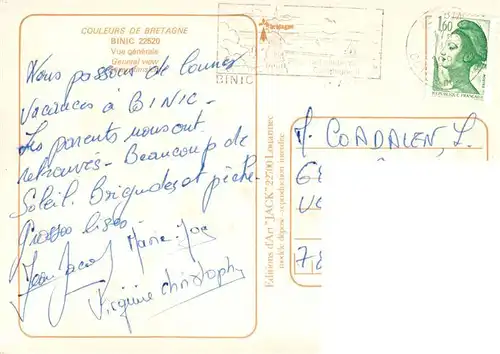 COULEURS DE BRETAGNE
BINIC 22520
Vue générale
General view
Nous passons de bonnes
vacances à BINIC -
Les parents nous ont
retrouvés - Beaucoup de
Soleil. Baignades et pêche -
Grosses bises -
Marie-Jo
Jean Jacques
Virginie Christophe
Editions d'Art "JACK" 22700 Louannec
modèle déposé - reproduction interdite
Bretagne
BINIC
1,60
REPUBLIQUE FRANÇAISE
M. COADALEN, L.
6
78